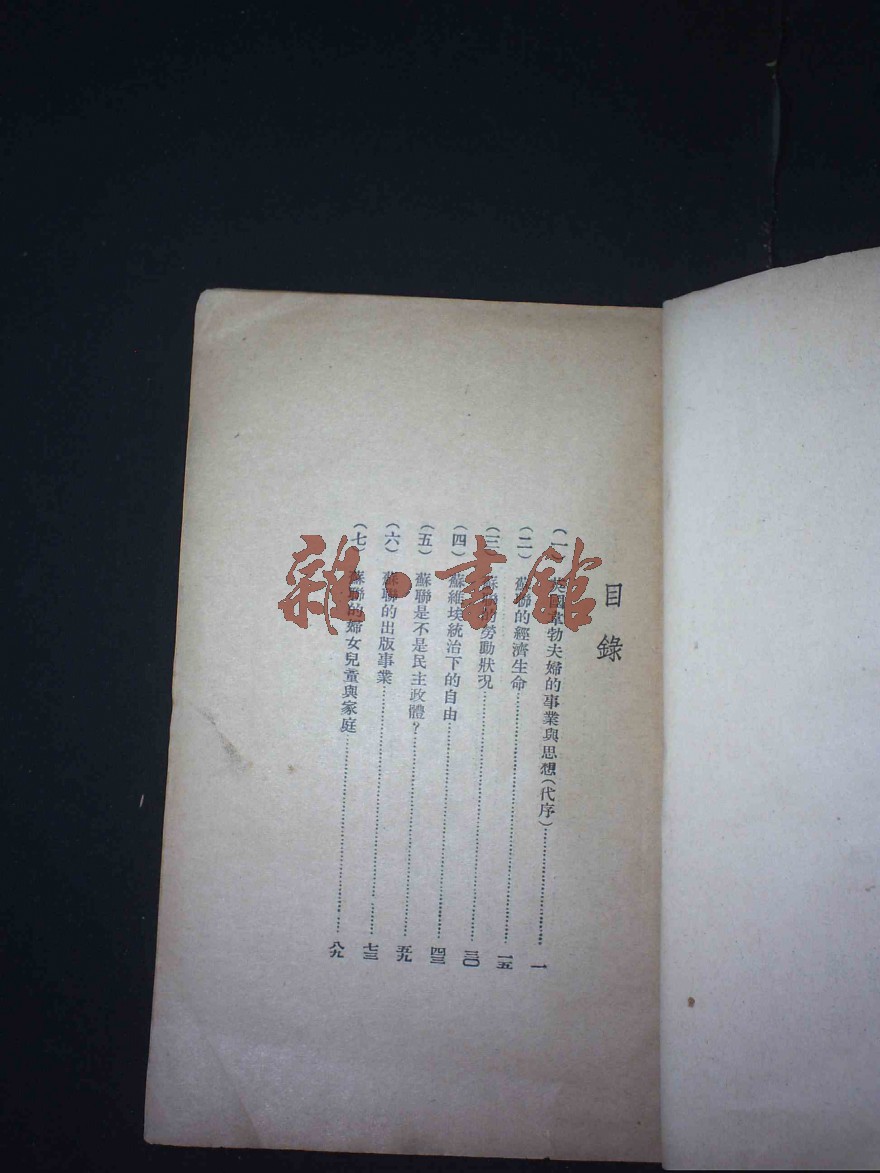 目錄
(一) 英國韋勃夫婦的事業與思想(代序)……一
(二) 蘇聯的經濟生命……一五
(三) 蘇聯的勞動狀況……三〇
(四) 蘇維埃統治下的自由……四三
(五) 蘇聯是不是民主政體?……五九
(六) 蘇聯的出版事業……七三
(七) 蘇聯的婦女兒童與家庭……八九
雜·書館